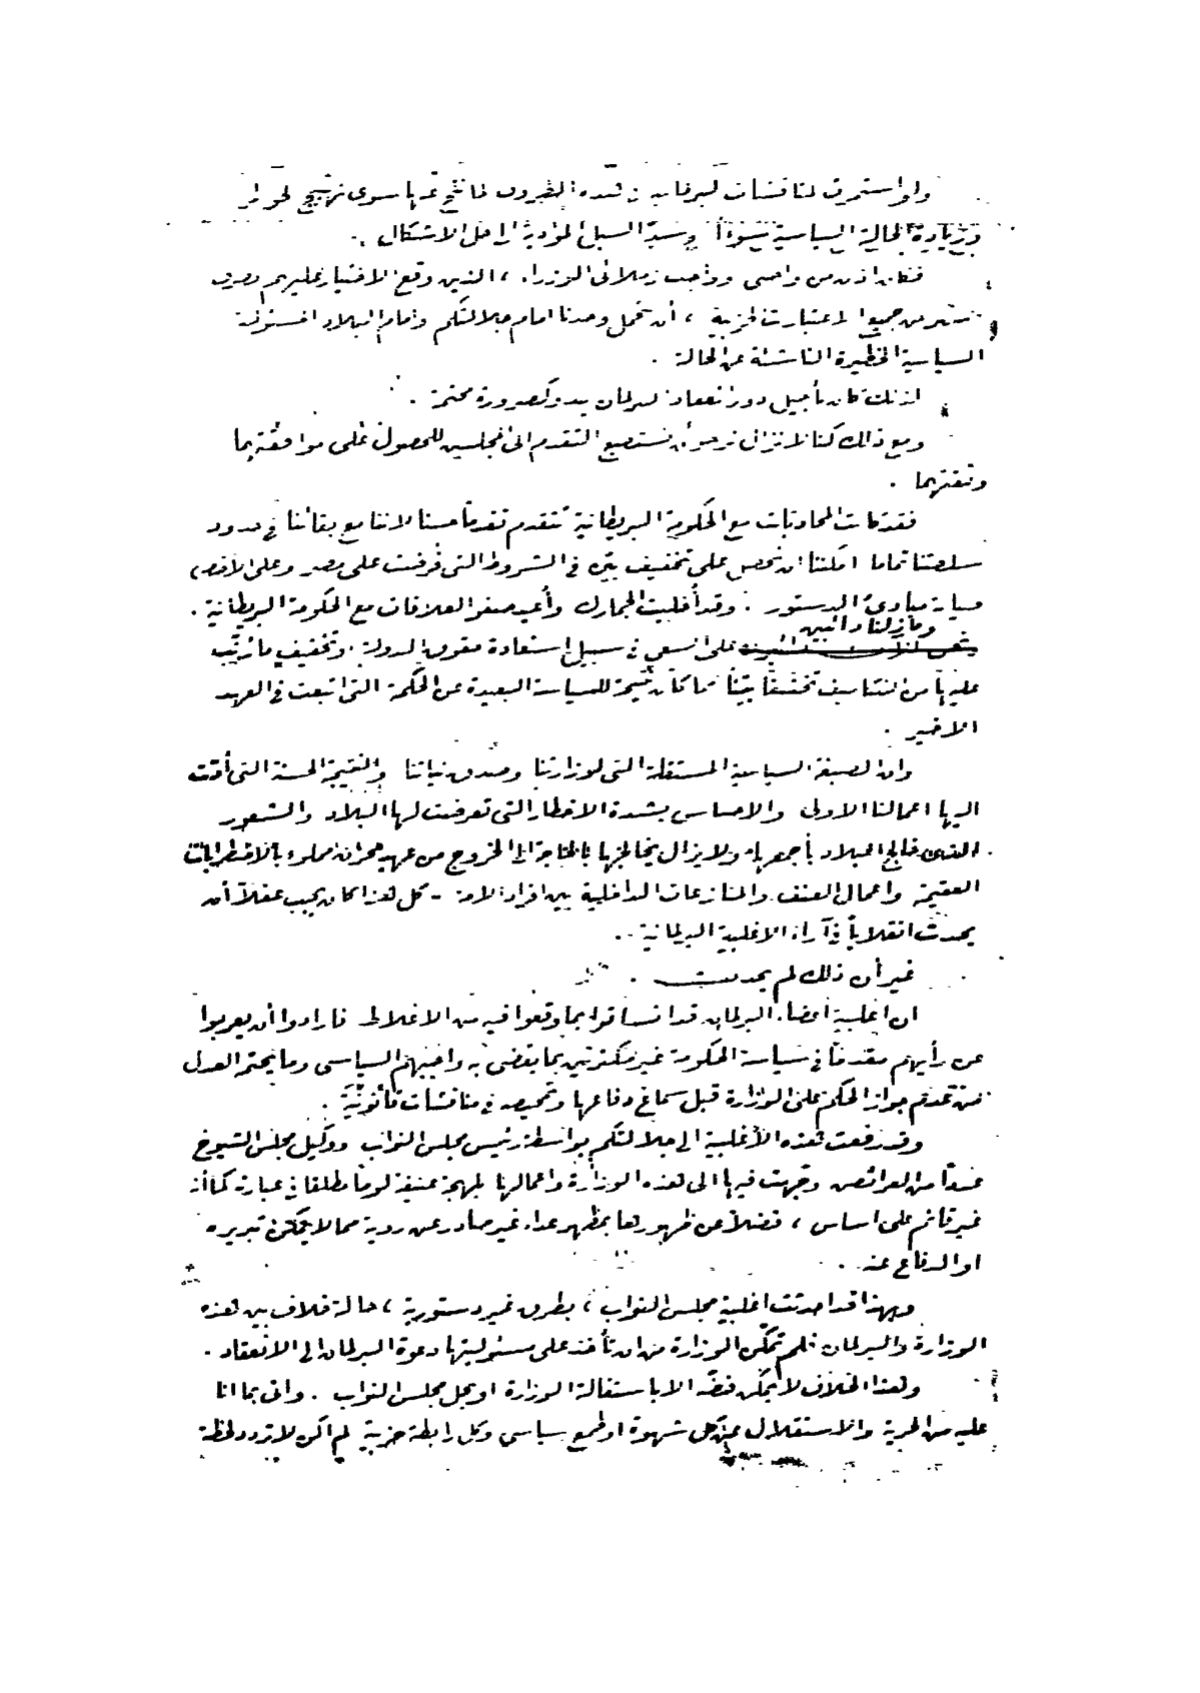 ولو استمرت المناقشات البرلمانية في هذه الظروف لما نتج عنها سوى تهييج الخواطر
وزيادة الحالة السياسية سوءاً وسدّ السبل المؤدية الى حل الاشكال .
فكان اذن من واجبى وواجب زملائى الوزراء ، الذين وقع الاختيار عليهم بصرف
النظر عن جميع الاعتبارات الحزبية ، أن نتحمل وحدنا امام جلالتكم وامام البلاد المسئولية
السياسية الخطيرة الناشئة عن الحالة .
لذلك كان تأجيل دور انعقاد البرلمان يبدو كضرورة محتمة .
ومع ذلك كنا لا نزال نرجو أن نستطيع التقدم الى المجلسين للحصول على موافقتهما
وثقتهما .
فقد كانت المحادثات مع الحكومة البريطانية تتقدم تقدماً حسناً لاننا مع بقائنا في حدود
سلطتنا تماما امكننا ان نحصل على تخفيف بيّن في الشروط التى فرضت على مصر وعلى الاخص
صيانة مبادئ الدستور . وقد أخليت الجمارك وأعيد صفو العلاقات مع الحكومة البريطانية .
وما زلنا دائبين
على السعى في سبيل استعادة حقوق الدولة وتخفيف ما ترتّب
عليها من التناسيف تخفيفاً بيّناً مما كان نتيجة للسياسة البعيدة عن الحكمة التى اتبعت في العهد
الاخير .
وان الصبغة السياسية المستقلة التى لوزارتنا وصدق نياتنا والنتيجة الحسنة التى أدّت
اليها اعمالنا الاولى والاحساس بشدة الاخطار التى تعرضت لها البلاد والشعور
الذى خالج البلاد بأجمعها ولا يزال يخالجها بالحاجة الى الخروج من عهد محزن مملوء بالاضطرابات
العقيمة واعمال العنف والمنازعات الداخلية بين افراد الامة - كل هذا كان يجب عقلاً أن
يحدث انقلاباً في آراء الاغلبية البرلمانية .
غير أن ذلك لم يحدث .
ان اغلبية أعضاء البرلمان قد انساقوا بما وقعوا فيه من الاغلاط فارادوا أن يعربوا
عن رأيهم مقدماً في سياسة الحكومة غير مكترثين بما يقضى به واجبهم السياسى وما يحتمه العدل
من عدم جواز الحكم على الوزارة قبل سماع دفاعها وتمحيصه في مناقشات قانونيّة .
وقد رفعت هذه الأغلبية الى جلالتكم بواسطة رئيس مجلس النواب ووكيل مجلس الشيوخ
عدداً من العرائض وجّهت فيها الى هذه الوزارة واعمالها بلهجة عنيفة لوماً مطلقا في عبارته كما أنه
غير قائم على اساس ، فضلاً عن ظهورها بمظهر عداء غير صادر عن روية مما لا يمكن تبريره
او الدفاع عنه .
وبهذا قد احدثت اغلبية مجلس النواب ، بطرق غير دستورية ، حالة خلاف بين هذه
الوزارة والبرلمان فلم تتمكن الوزارة من ان تأخذ على مسئوليتها دعوة البرلمان الى الانعقاد .
وهذا الخلاف لا يمكن فضّه الا باستقالة الوزارة او بحل مجلس النواب . وانى بما انا
عليه من الحرية والاستقلال عن كل شهوة او طمع سياسى وكل رابطة حزبية لم اكن لاتردد لحظة